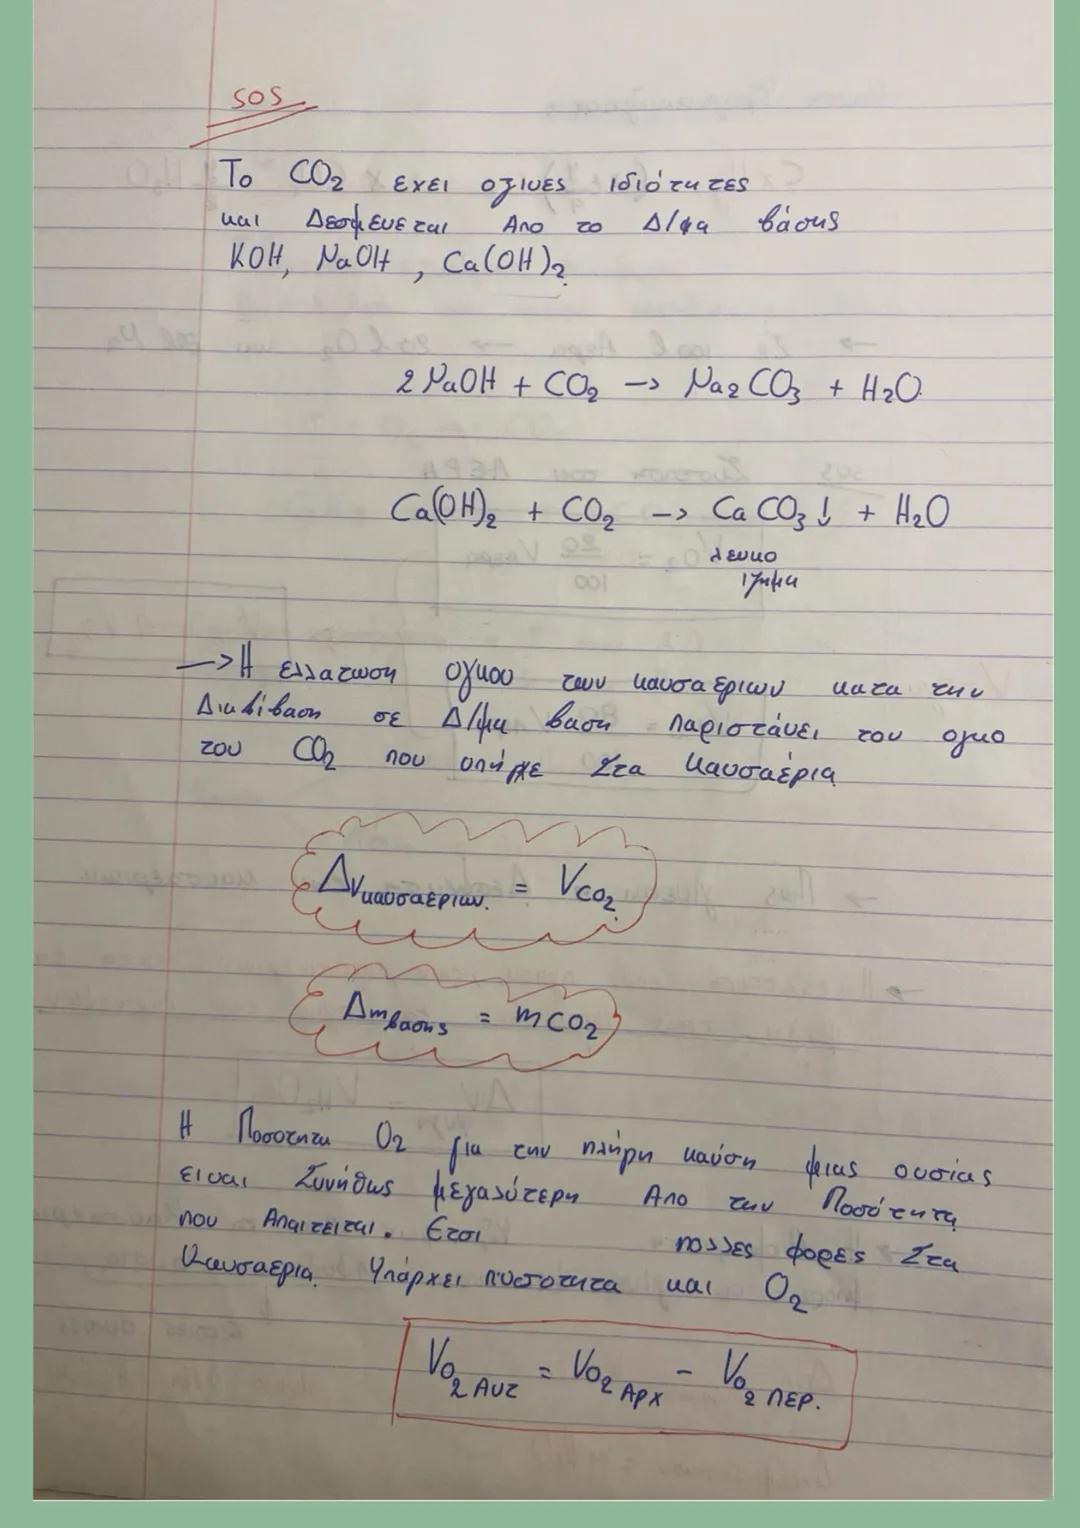 SOS
Το CO2 εχει οξινες ιδιότητες
και Δεσμευεται Απο το Δ/μα βάσης
KOH, NaOH, Ca(OH)2
2NaOH + CO2 → Na2CO3 + H2O
Ca(OH)2 + CO2 → CaCO3↓ + H2O
λευκο
ιζημα
→ Η ελλατωση ογκου των καυσαεριων κατα την
Διαβίβαση σε Δ/μα βαση παριστάνει τον ογκο
του CO2 που υπήρχε Στα Καυσαέρια
ΔVκαυσαεριων. = VCO2
Δmβασης = mCO2
Η Ποσοτητα O2 για την πλήρη καύση μιας ουσίας
ειναι Συνήθως μεγαλύτερη Απο την Ποσότητα
που Απαιτειται. Ετσι πολλες φορες Στα
Καυσαερια Υπάρχει ποσοτητα και O2
VO2 Αντ = VO2 Αρχ - VO2 περ.